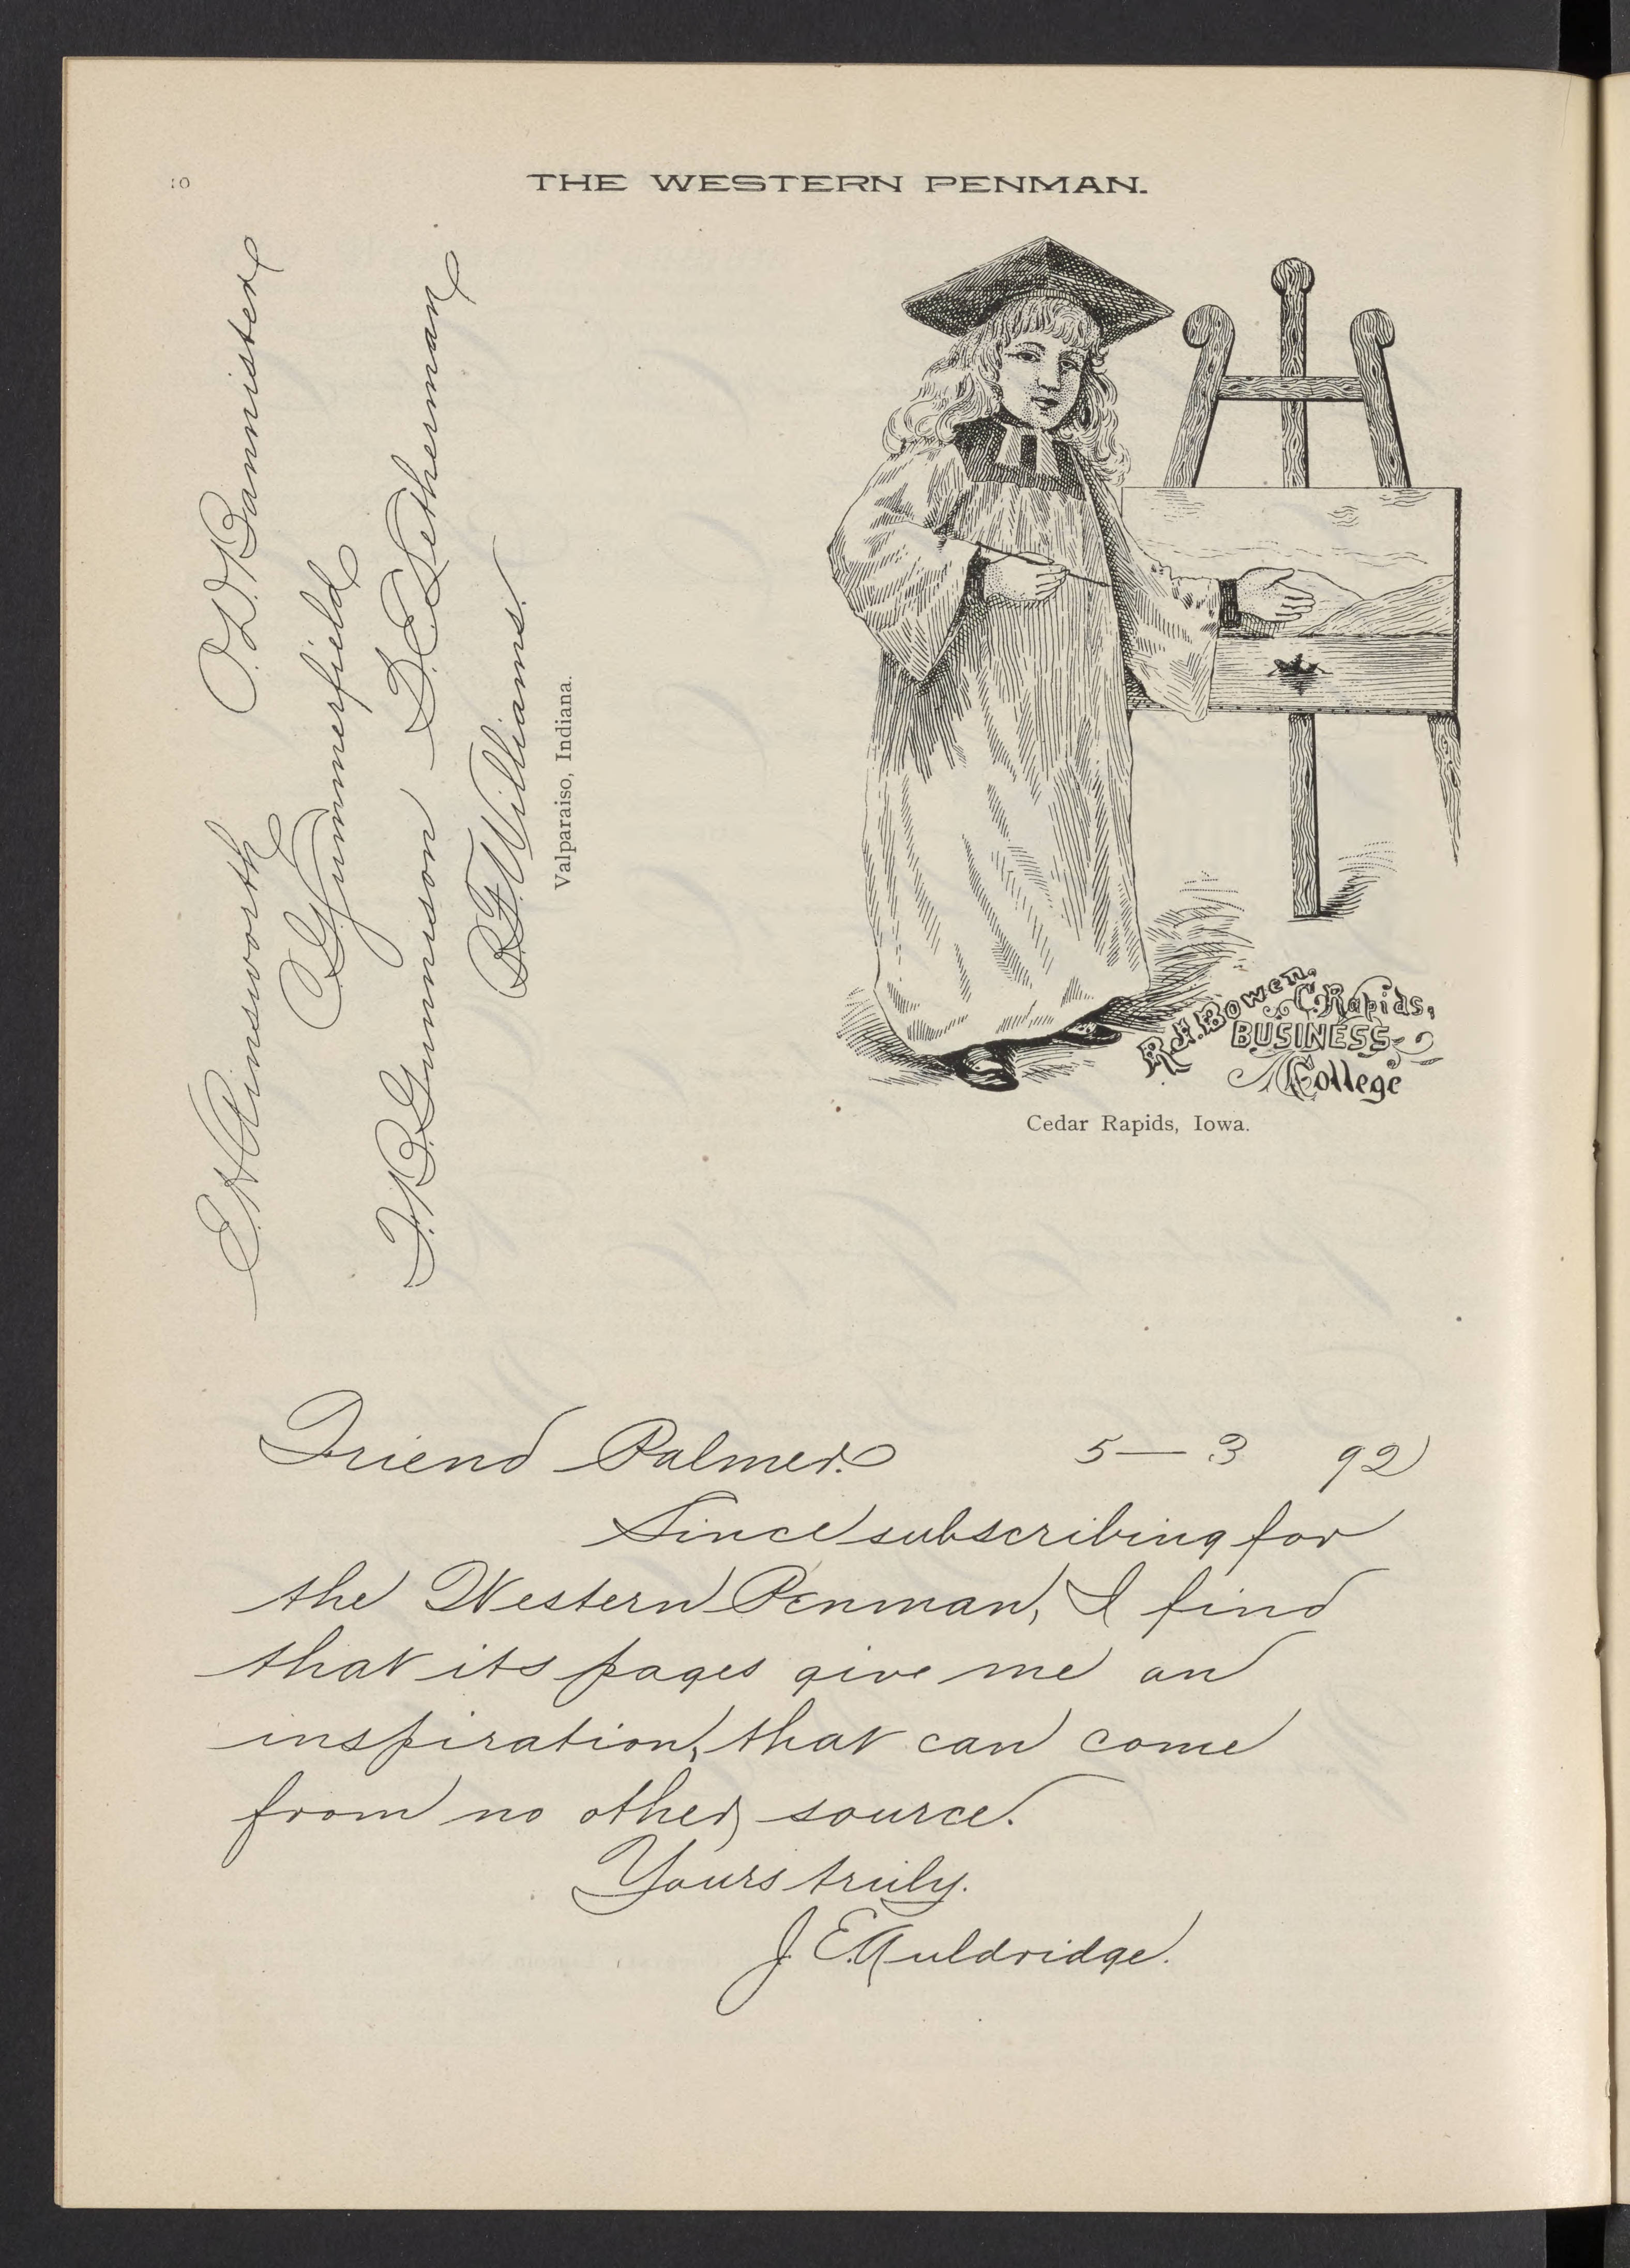 10
THE WESTERN PENMAN.
E. H. Ainsworth
O. W. Bannister
C. Summerfield
F. B. Gunnison
D. E. Letherman
B. F. Williams.
Valparaiso, Indiana.
R. H. Bowen,
C. Rapids,
BUSINESS
College
Cedar Rapids, Iowa.
Friend Palmer. 5 — 3 92
Since subscribing for
the Western Penman, I find
that its pages give me an
inspiration, that can come
from no other source.
Yours truly.
J. E. Auldridge.